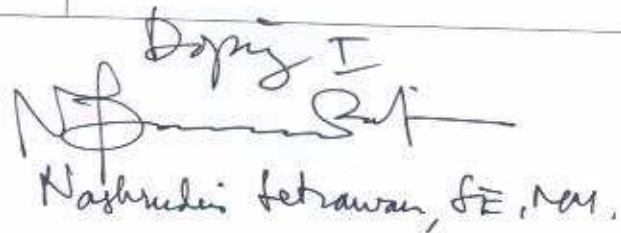 Doping I
Nashrudin Setiawan, SE, MM.